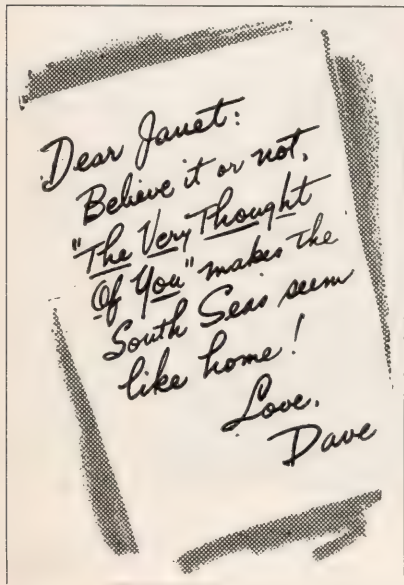 Dear Janet:
Believe it or not,
"The Very Thought
Of You" makes the
South Seas seem
like home!
Love,
Dave